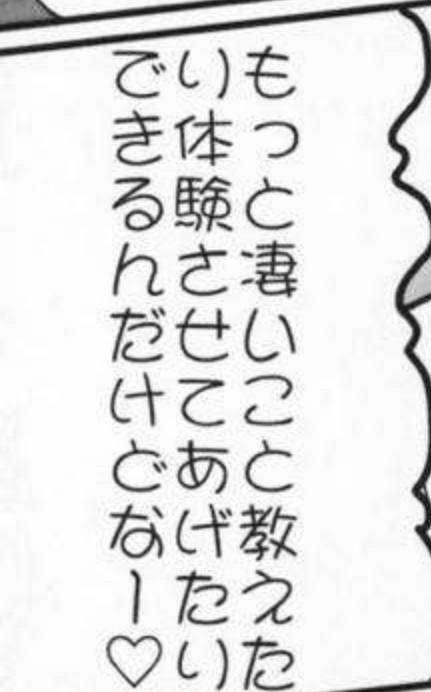 もっと凄いこと教えた
り体験させてあげたり
できるんだけどなー♡